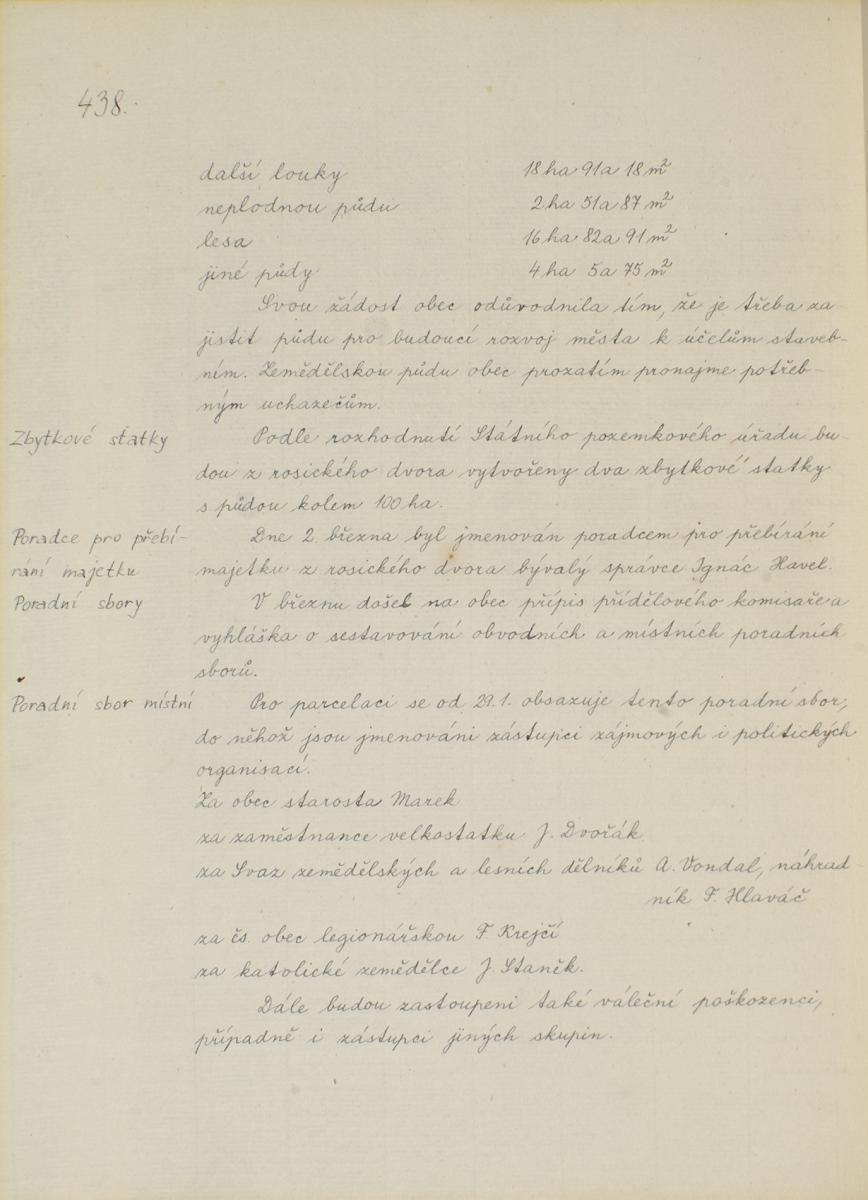 438.
další louky 18 ha 91a 18 m²
neplodnou půdu 2 ha 51a 87 m²
lesa 16 ha 82a 91 m²
jiné půdy 4 ha 5a 75 m²
Svou žádost obec odůvodnila tím, že je třeba za-
jistit půdu pro budoucí rozvoj města k účelům staveb-
ním. Zemědělskou půdu obec prozatím pronajme potřeb-
ným uchazečům.
Zbytkové statky Podle rozhodnutí Státního pozemkového úřadu bu-
dou z rosického dvora vytvořeny dva zbytkové statky
s půdou kolem 100 ha.
Poradce pro přebí- Dne 2. března byl jmenován poradcem pro přebírání
rání majetku majetku z rosického dvora bývalý správce Ignác Havel.
Poradní sbory V březnu došel na obec přípis přídělového komisaře a
vyhláška o sestavování obvodních a místních poradních
sborů.
Poradní sbor místní Pro parcelaci se od 29.1. obsazuje tento poradní sbor,
do něhož jsou jmenováni zástupci zájmových i politických
organisací.
Za obec starosta Marek
za zaměstnance velkostatku J. Dvořák
za Svaz zemědělských a lesních dělníků A. Vondal, náhrad-
ník F. Hlaváč
za čs. obec legionářskou F. Krejčí
za katolické zemědělce J. Staněk.
Dále budou zastoupeni také váleční poškozenci,
případně i zástupci jiných skupin.